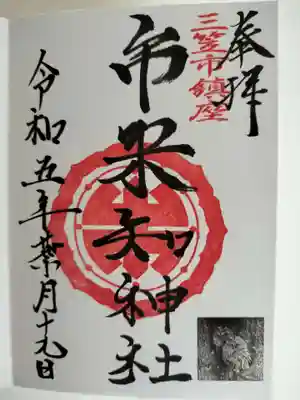 奉拝
三笠市鎮座
市来知神社
令和五年葉月十九日